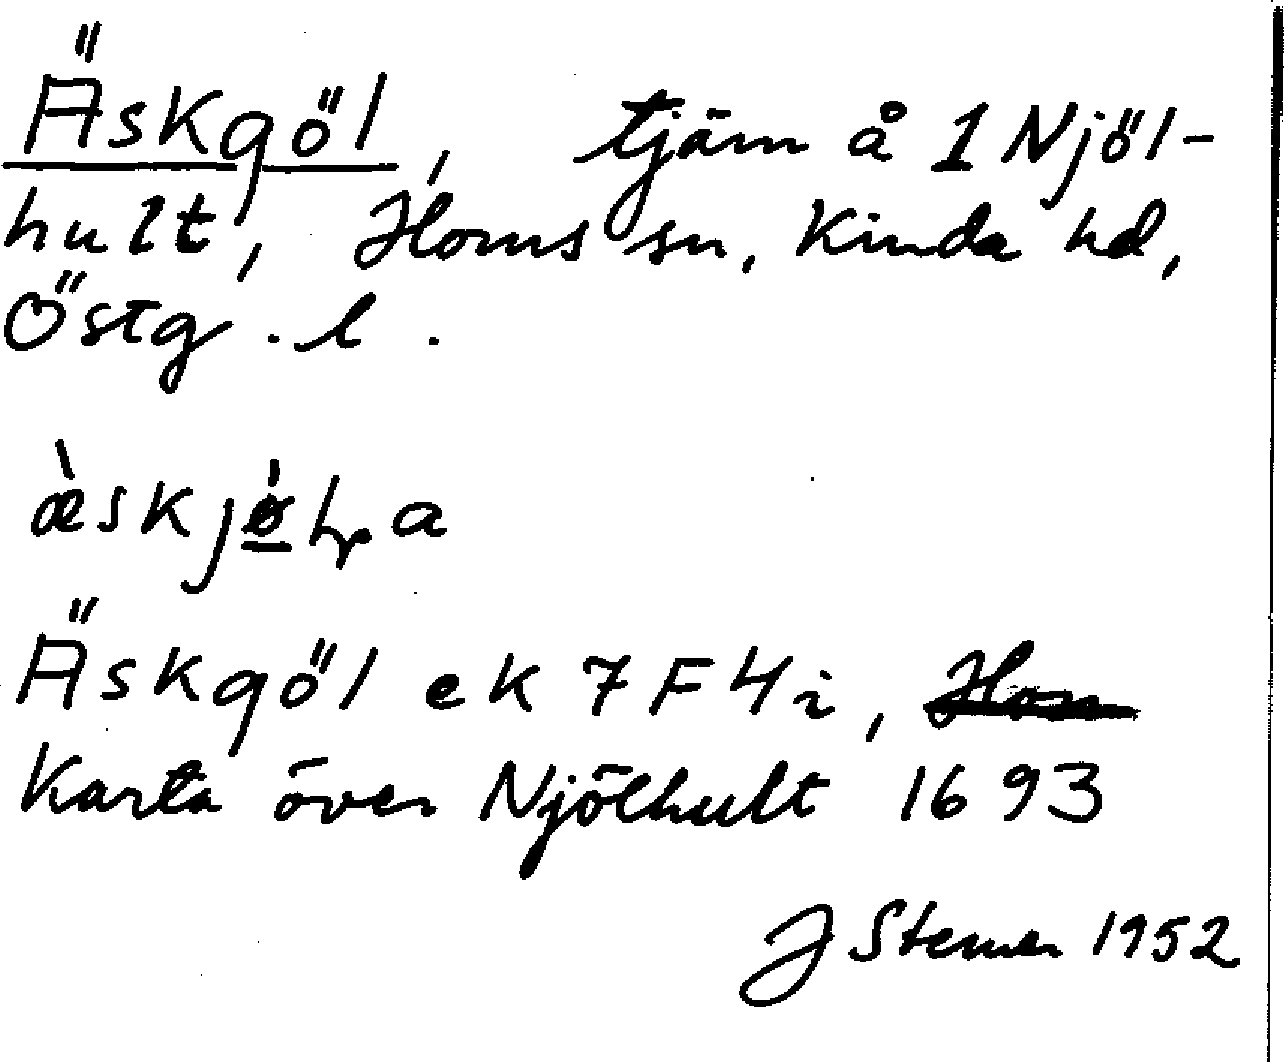 Äskgöl, tjärn å 1 Njöl-
hult, Horns sn, Kinda hd,
Östg. l.
Äskgöl ek 7F4i, Horn
Karta över Njölhult 1693
J Sterner 1952